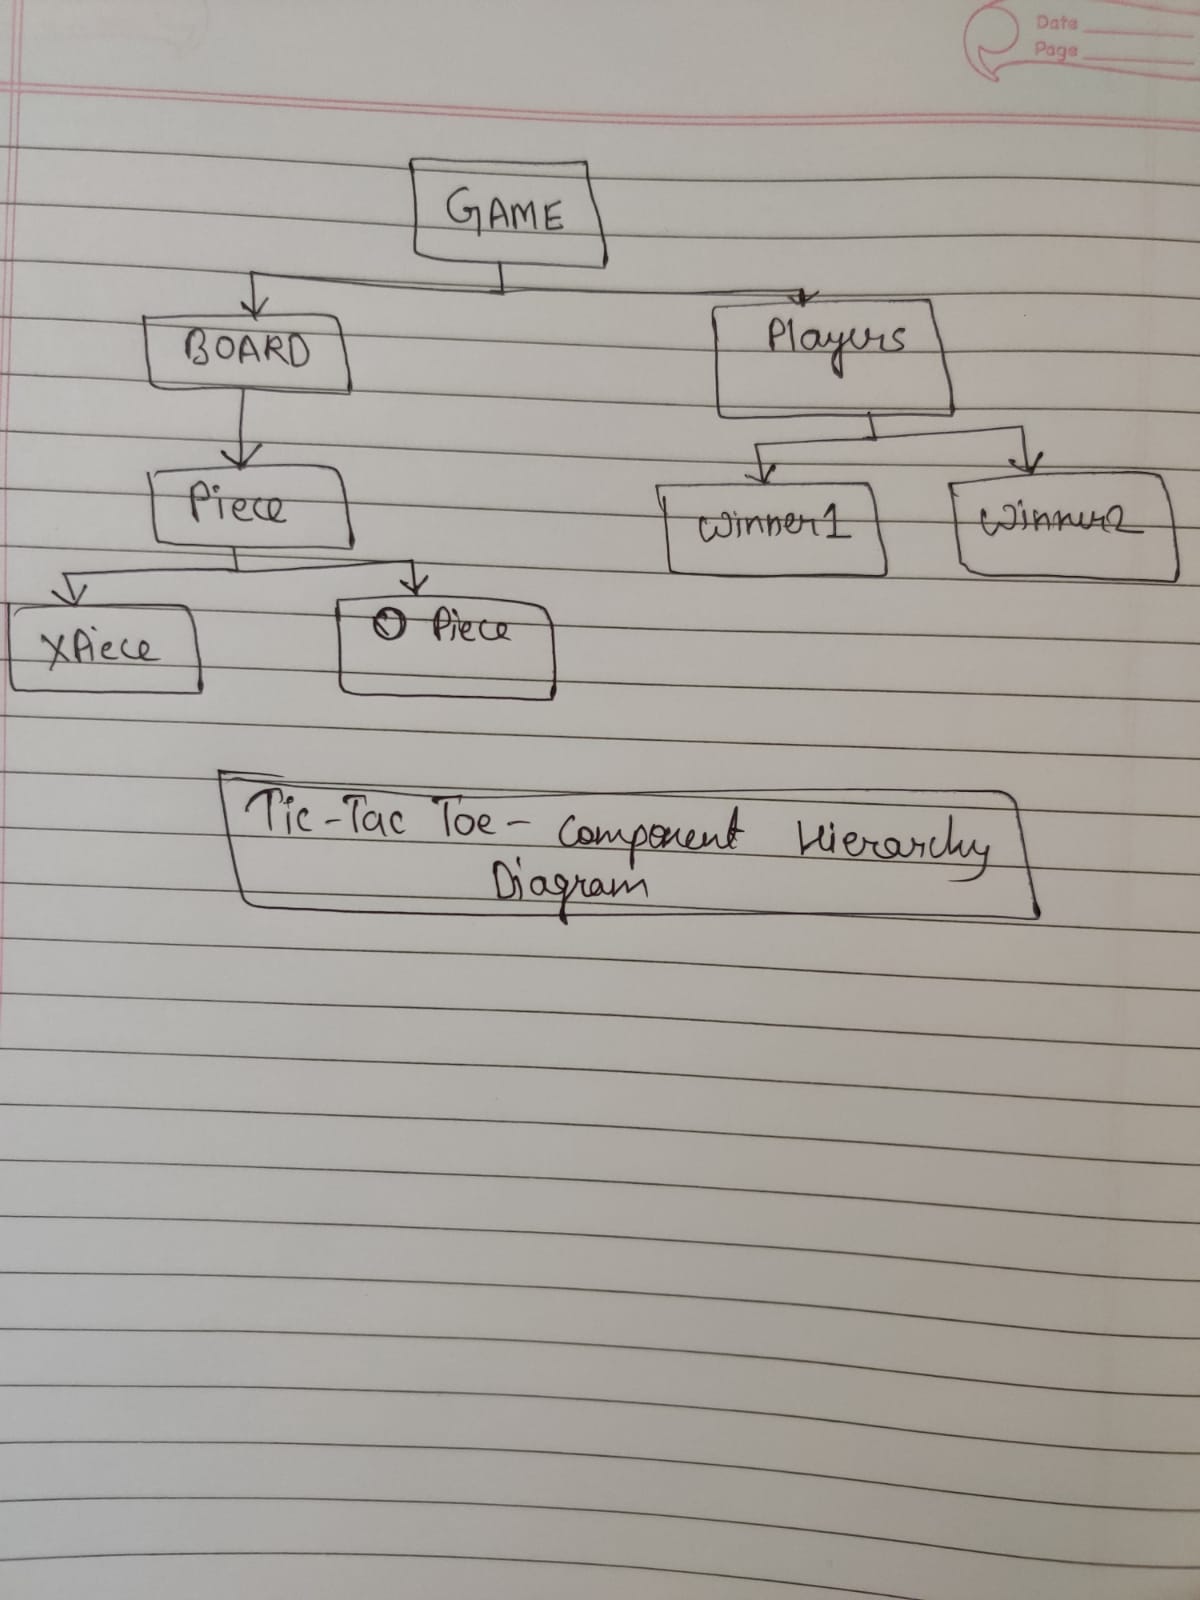 Date
Page
GAME
BOARD
Players
Piece
winner1
winner2
XPiece
O Piece
Tic-Tac Toe - Component Hierarchy
Diagram